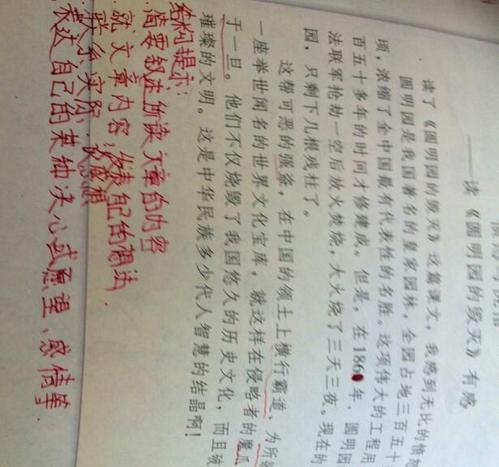 ——读《圆明园的毁灭》有感
读了《圆明园的毁灭》这篇课文，我感到无比的愤
圆明园是我国著名的皇家园林，全园占地三百五十
顷，浓缩了全中国最有代表性的名胜。这项伟大的工程用
百五十多年的时间才修建成。但是，在1860年，圆明园
法联军抢劫一空后放火焚烧，大火烧了三天三夜。现在的
园，只剩下几根残柱了。
这帮可恶的强盗，在中国的领土上横行霸道、为所
一座举世闻名的世界文化宝库，就这样在侵略者的魔爪
于一旦。他们不仅烧毁了我国悠久的历史文化，而且
璀璨的文明。这是中华民族多少代人智慧的结晶啊！
结构提示：
简要叙述所读文章的内容
就文章内容，发表自己的看法
联系实际，谈
表达自己的某种决心或愿望、感情等.